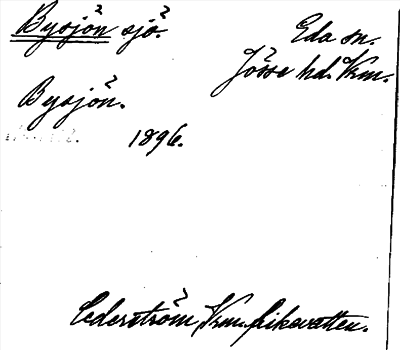 Bysjön sjö.
Eda sn.
Jösse hd. Vrm.
Bysjön.
1896.
Cederström, Vrm. fiskevatten.